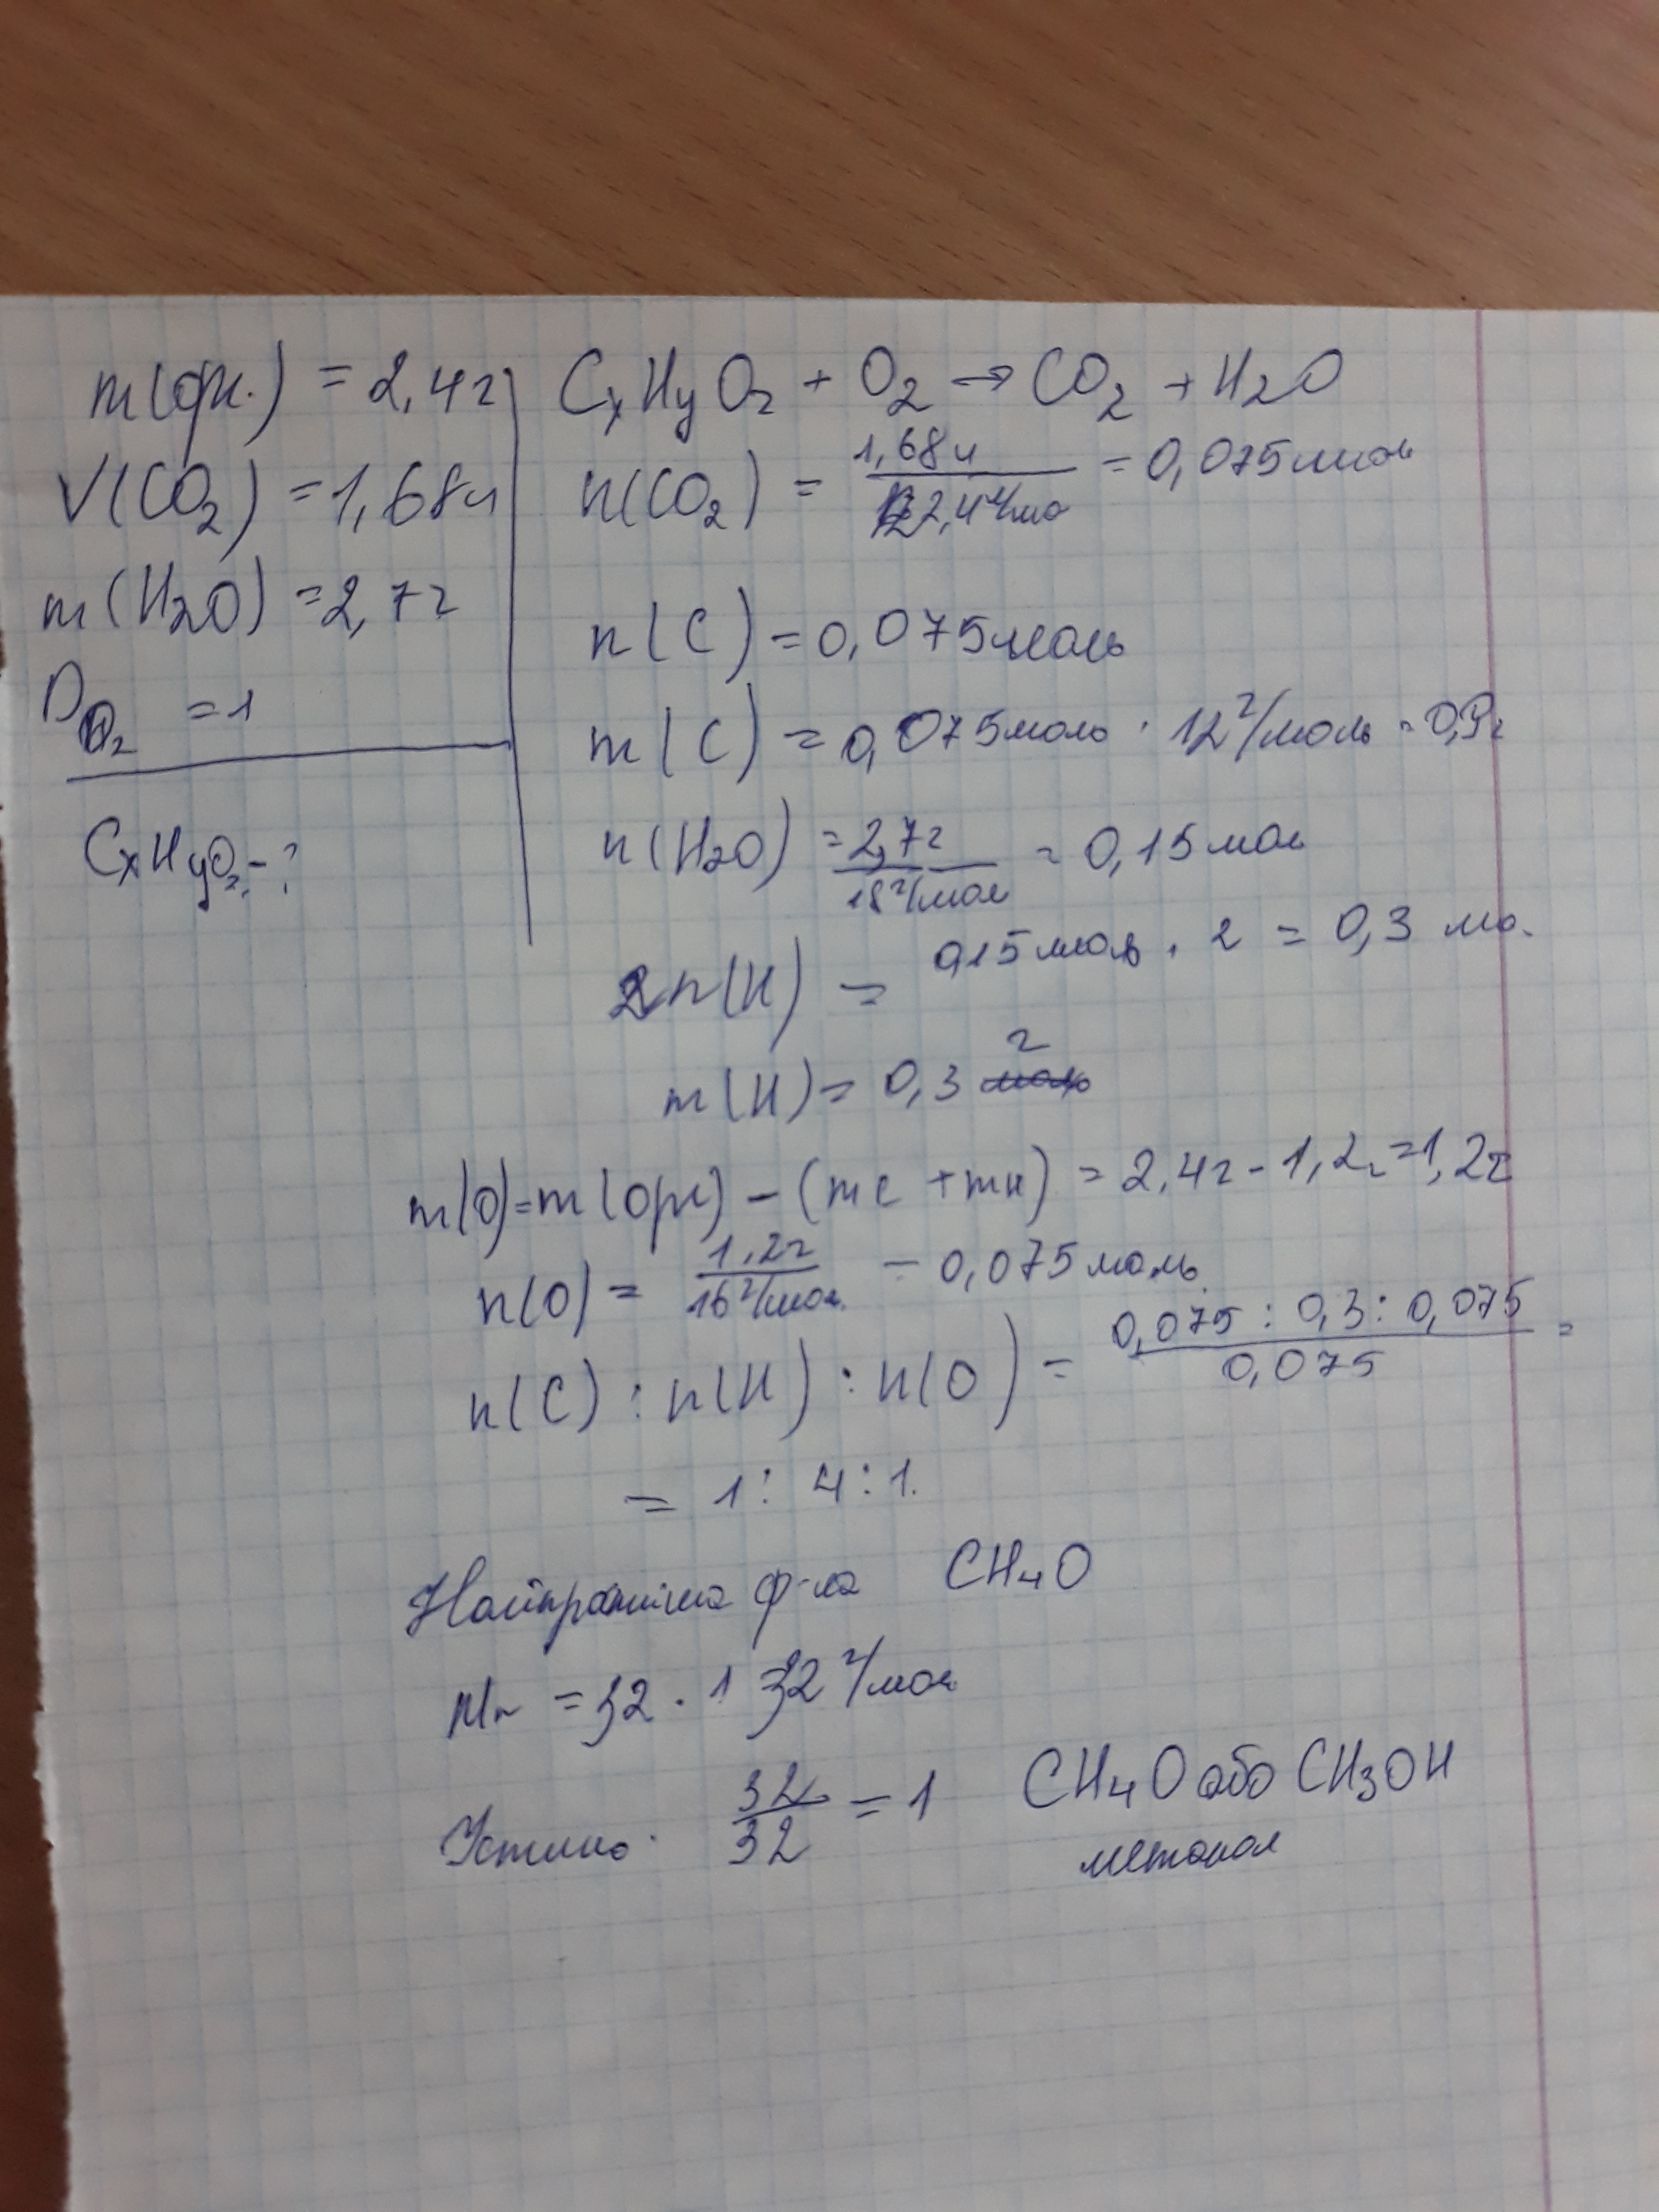 m(орг.) = 2,4г
V(CO2) = 1,68л
m(H2O) = 2,7г
DO2 = 1
CxHyOz - ?
CxHyOz + O2 → CO2 + H2O
n(CO2) = 1,68л / 22,4л/мо = 0,075моль
n(C) = 0,075моль
m(C) = 0,075моль · 12г/моль = 0,9г
n(H2O) = 2,7г / 18г/мол = 0,15мол
n(H) = 0,15моль · 2 = 0,3 мо.
m(H) = 0,3 г
m(O) = m(орг) - (mc + mн) = 2,4г - 1,2г = 1,2г
n(O) = 1,2г / 16г/мол. = 0,075моль
n(C) : n(H) : n(O) = 0,075 : 0,3 : 0,075 / 0,075 =
= 1 : 4 : 1.
Найпростіша ф-ла CH4O
Mr = 32 · 1 = 32г/мол
32/32 = 1 CH4O або CH3OH
метанол